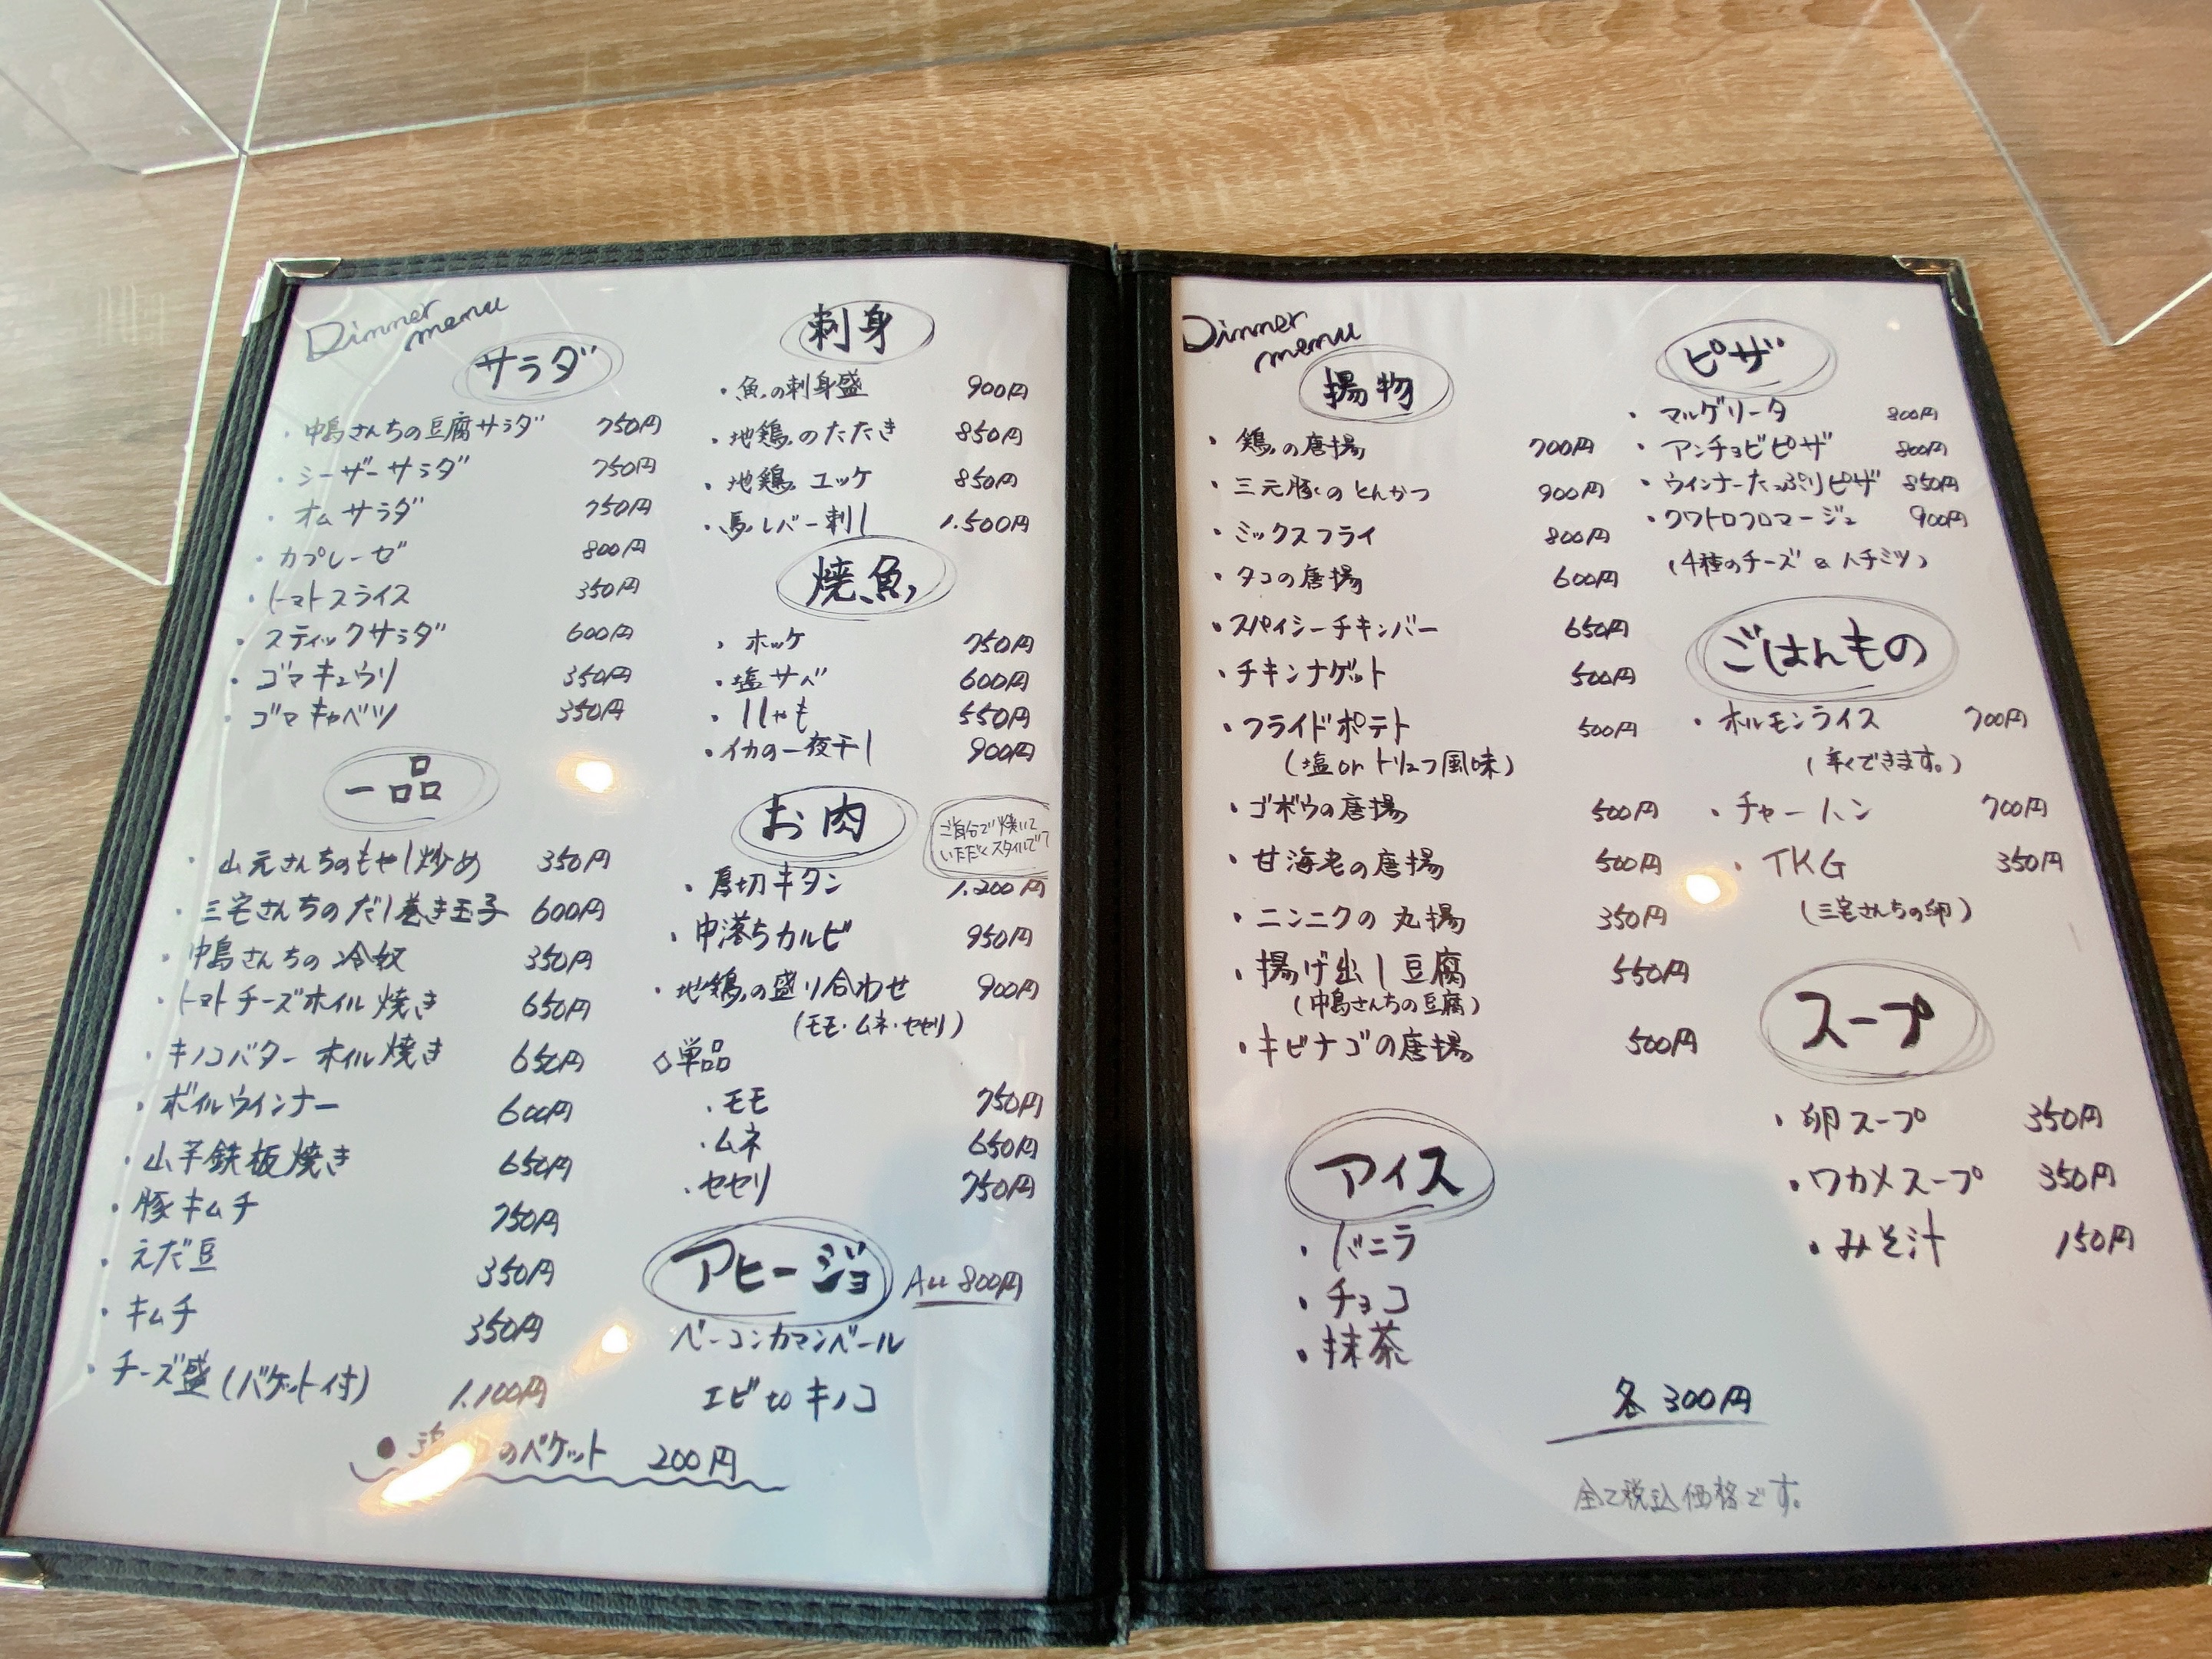 Dinner menu
サラダ
・中島さんちの豆腐サラダ 750円
・シーザーサラダ 750円
・オムサラダ 750円
・カプレーゼ 800円
・トマトスライス 350円
・スティックサラダ 600円
・ゴマキュウリ 350円
・ゴマキャベツ 350円
一品
・山元さんちのもやし炒め 350円
・三宅さんちのだし巻き玉子 600円
・中島さんちの冷奴 350円
・トマトチーズホイル焼き 650円
・キノコバターホイル焼き 650円
・ボイルウインナー 600円
・山芋鉄板焼き 650円
・豚キムチ 750円
・えだ豆 350円
・キムチ 350円
・チーズ盛(バケット付) 1.100円
●のバケット 200円
刺身
・魚の刺身盛 900円
・地鶏のたたき 850円
・地鶏ユッケ 850円
・馬レバー刺し 1.500円
焼魚
・ホッケ 750円
・塩サバ 600円
・ししゃも 550円
・イカの一夜干し 900円
お肉
ご自分で焼いて
いただくスタイルです
・厚切牛タン 1.200円
・中落ちカルビ 950円
・地鶏の盛り合わせ 900円
(モモ・ムネ・セセリ)
◇単品
・モモ 750円
・ムネ 650円
・セセリ 750円
アヒージョ ALL 800円
ベーコンカマンベール
エビtoキノコ
Dinner menu
揚物
・鶏の唐揚 700円
・三元豚のとんかつ 900円
・ミックスフライ 800円
・タコの唐揚 600円
・スパイシーチキンバー 650円
・チキンナゲット 500円
・フライドポテト 500円
(塩orトリュフ風味)
・ゴボウの唐揚 500円
・甘海老の唐揚 500円
・ニンニクの丸揚 350円
・揚げ出し豆腐 550円
(中島さんちの豆腐)
・キビナゴの唐揚 500円
アイス
・バニラ
・チョコ
・抹茶
各300円
ピザ
・マルゲリータ 800円
・アンチョビピザ 800円
・ウインナーたっぷりピザ 850円
・クワトロフロマージュ 900円
(4種のチーズ&ハチミツ)
ごはんもの
・ホルモンライス 700円
(辛くできます。)
・チャーハン 700円
・TKG 350円
(三宅さんちの卵)
スープ
・卵スープ 350円
・ワカメスープ 350円
・みそ汁 150円
全て税込価格です。